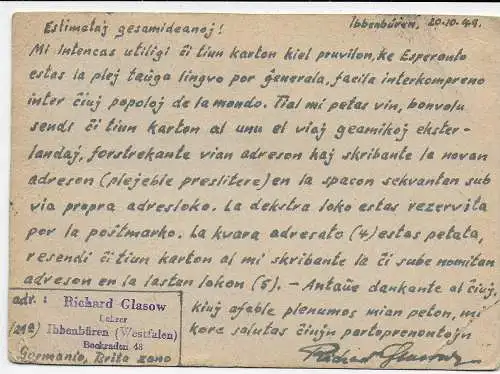 Ibbenbüren, 20.10.49.
Estimataj gesamideanoj!
Mi intencas utiligi ĉi tiun karton kiel pruvilon, ke Esperanto
estas la plej taŭga lingvo por ĝenerala, facila interkompreno
inter ĉiuj popoloj de la mondo. Tial mi petas vin, bonvolu
sendi ĉi tiun karton al unu el viaj geamikoj ekster-
landaj, forstrekante vian adreson kaj skribante la novan
adreson (plejeble preslitere) en la spacon sekvantan sub
via propra adresloko. La dekstra loko estas rezervita
por la poŝtmarko. La kvara adresato (4) estas petata,
resendi ĉi tiun karton al mi skribante la ĉi sube nomitan
adreson en la lastan lokon (5). - Antaŭe dankante al ĉiuj,
kiuj afable plenumos mian peton, mi
kore salutas ĉiujn partoprenontojn
adr.:
Richard Glasow
Lehrer
(21a) Ibbenbüren (Westfalen)
Bockraden 48
Germanio, Brita zono
Richard Glasow